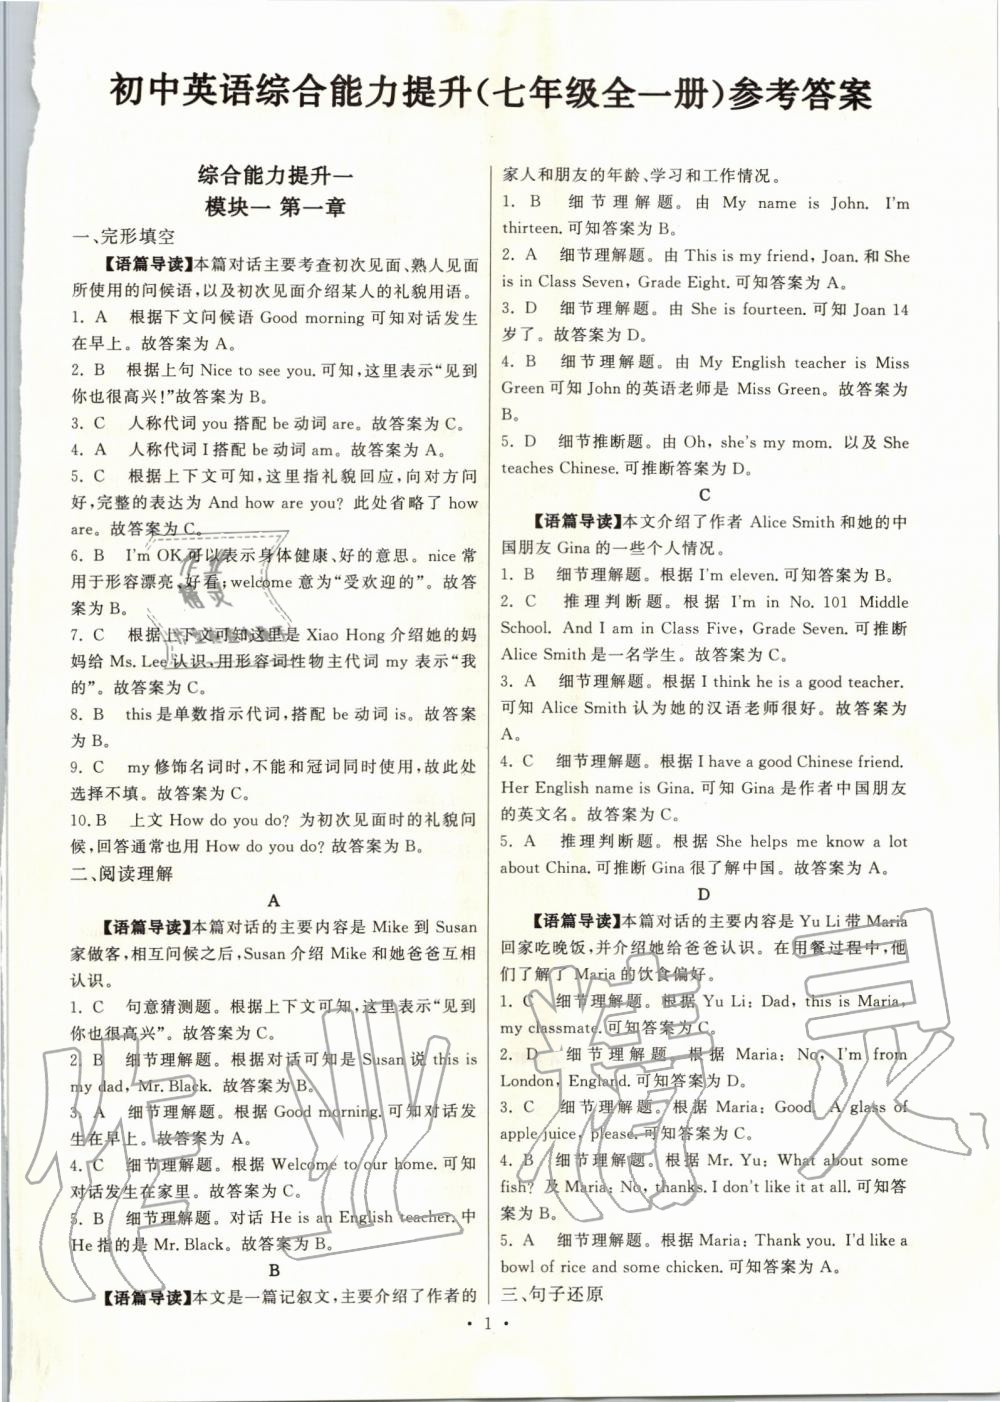 初中英语综合能力提升(七年级全一册)参考答案
综合能力提升一
模块一 第一章
一、完形填空
【语篇导读】本篇对话主要考查初次见面、熟人见面
所使用的问候语,以及初次见面介绍某人的礼貌用语。
1. A 根据下文问候语 Good morning 可知对话发生
在早上。故答案为 A。
2. B 根据上句 Nice to see you. 可知,这里表示“见到
你也很高兴!”故答案为 B。
3. C 人称代词 you 搭配 be 动词 are。故答案为 C。
4. A 人称代词 I 搭配 be 动词 am。故答案为 A。
5. C 根据上下文可知,这里指礼貌回应,向对方问
好,完整的表达为 And how are you? 此处省略了 how
are。故答案为 C。
6. B I'm OK 可以表示身体健康、好的意思。nice 常
用于形容漂亮、好看;welcome 意为“受欢迎的”。故答
案为 B。
7. C 根据上下文可知这里是 Xiao Hong 介绍她的妈
妈给 Ms. Lee 认识,用形容词性物主代词 my 表示“我
的”。故答案为 C。
8. B this 是单数指示代词,搭配 be 动词 is。故答案
为 B。
9. C my 修饰名词时,不能和冠词同时使用,故此处
选择不填。故答案为 C。
10. B 上文 How do you do? 为初次见面时的礼貌问
候,回答通常也用 How do you do? 故答案为 B。
二、阅读理解
A
【语篇导读】本篇对话的主要内容是 Mike 到 Susan
家做客,相互问候之后,Susan 介绍 Mike 和她爸爸互相
认识。
1. C 句意猜测题。根据上下文可知,这里表示“见到
你也很高兴”。故答案为 C。
2. B 细节理解题。根据对话可知是 Susan 说 this is
my dad, Mr. Black. 故答案为 B。
3. A 细节理解题。根据 Good morning. 可知对话发
生在早上。故答案为 A。
4. C 细节理解题。根据 Welcome to our home. 可知
对话发生在家里。故答案为 C。
5. B 细节理解题。对话 He is an English teacher. 中
He 指的是 Mr. Black。故答案为 B。
B
【语篇导读】本文是一篇记叙文,主要介绍了作者的
家人和朋友的年龄、学习和工作情况。
1. B 细节理解题。由 My name is John. I'm
thirteen. 可知答案为 B。
2. A 细节理解题。由 This is my friend, Joan. 和 She
is in Class Seven, Grade Eight. 可知答案为 A。
3. D 细节理解题。由 She is fourteen. 可知 Joan 14
岁了。故答案为 D。
4. B 细节理解题。由 My English teacher is Miss
Green 可知 John 的英语老师是 Miss Green。故答案为
B。
5. D 细节推断题。由 Oh, she's my mom. 以及 She
teaches Chinese. 可推断答案为 D。
C
【语篇导读】本文介绍了作者 Alice Smith 和她的中
国朋友 Gina 的一些个人情况。
1. B 细节理解题。根据 I'm eleven. 可知答案为 B。
2. C 推理判断题。根据 I'm in No. 101 Middle
School. And I am in Class Five, Grade Seven. 可推断
Alice Smith 是一名学生。故答案为 C。
3. A 细节理解题。根据 I think he is a good teacher.
可知 Alice Smith 认为她的汉语老师很好。故答案为
A。
4. C 细节理解题。根据 I have a good Chinese friend.
Her English name is Gina. 可知 Gina 是作者中国朋友
的英文名。故答案为 C。
5. A 推理判断题。根据 She helps me know a lot
about China. 可推断 Gina 很了解中国。故答案为 A。
D
【语篇导读】本篇对话的主要内容是 Yu Li 带 Maria
回家吃晚饭,并介绍她给爸爸认识。在用餐过程中,他
们了解了 Maria 的饮食偏好。
1. C 细节理解题。根据 Yu Li: Dad, this is Maria,
my classmate. 可知答案为 C。
2. D 细节理解题。根据 Maria: No, I'm from
London, England. 可知答案为 D。
3. C 细节理解题。根据 Maria: Good. A glass of
apple juice, please. 可知答案为 C。
4. B 细节理解题。根据 Mr. Yu: What about some
fish? 及 Maria: No, thanks. I don't like it at all. 可知答
案为 B。
5. A 细节理解题。根据 Maria: Thank you. I'd like a
bowl of rice and some chicken. 可知答案为 A。
三、句子还原
• 1 •
作业精灵